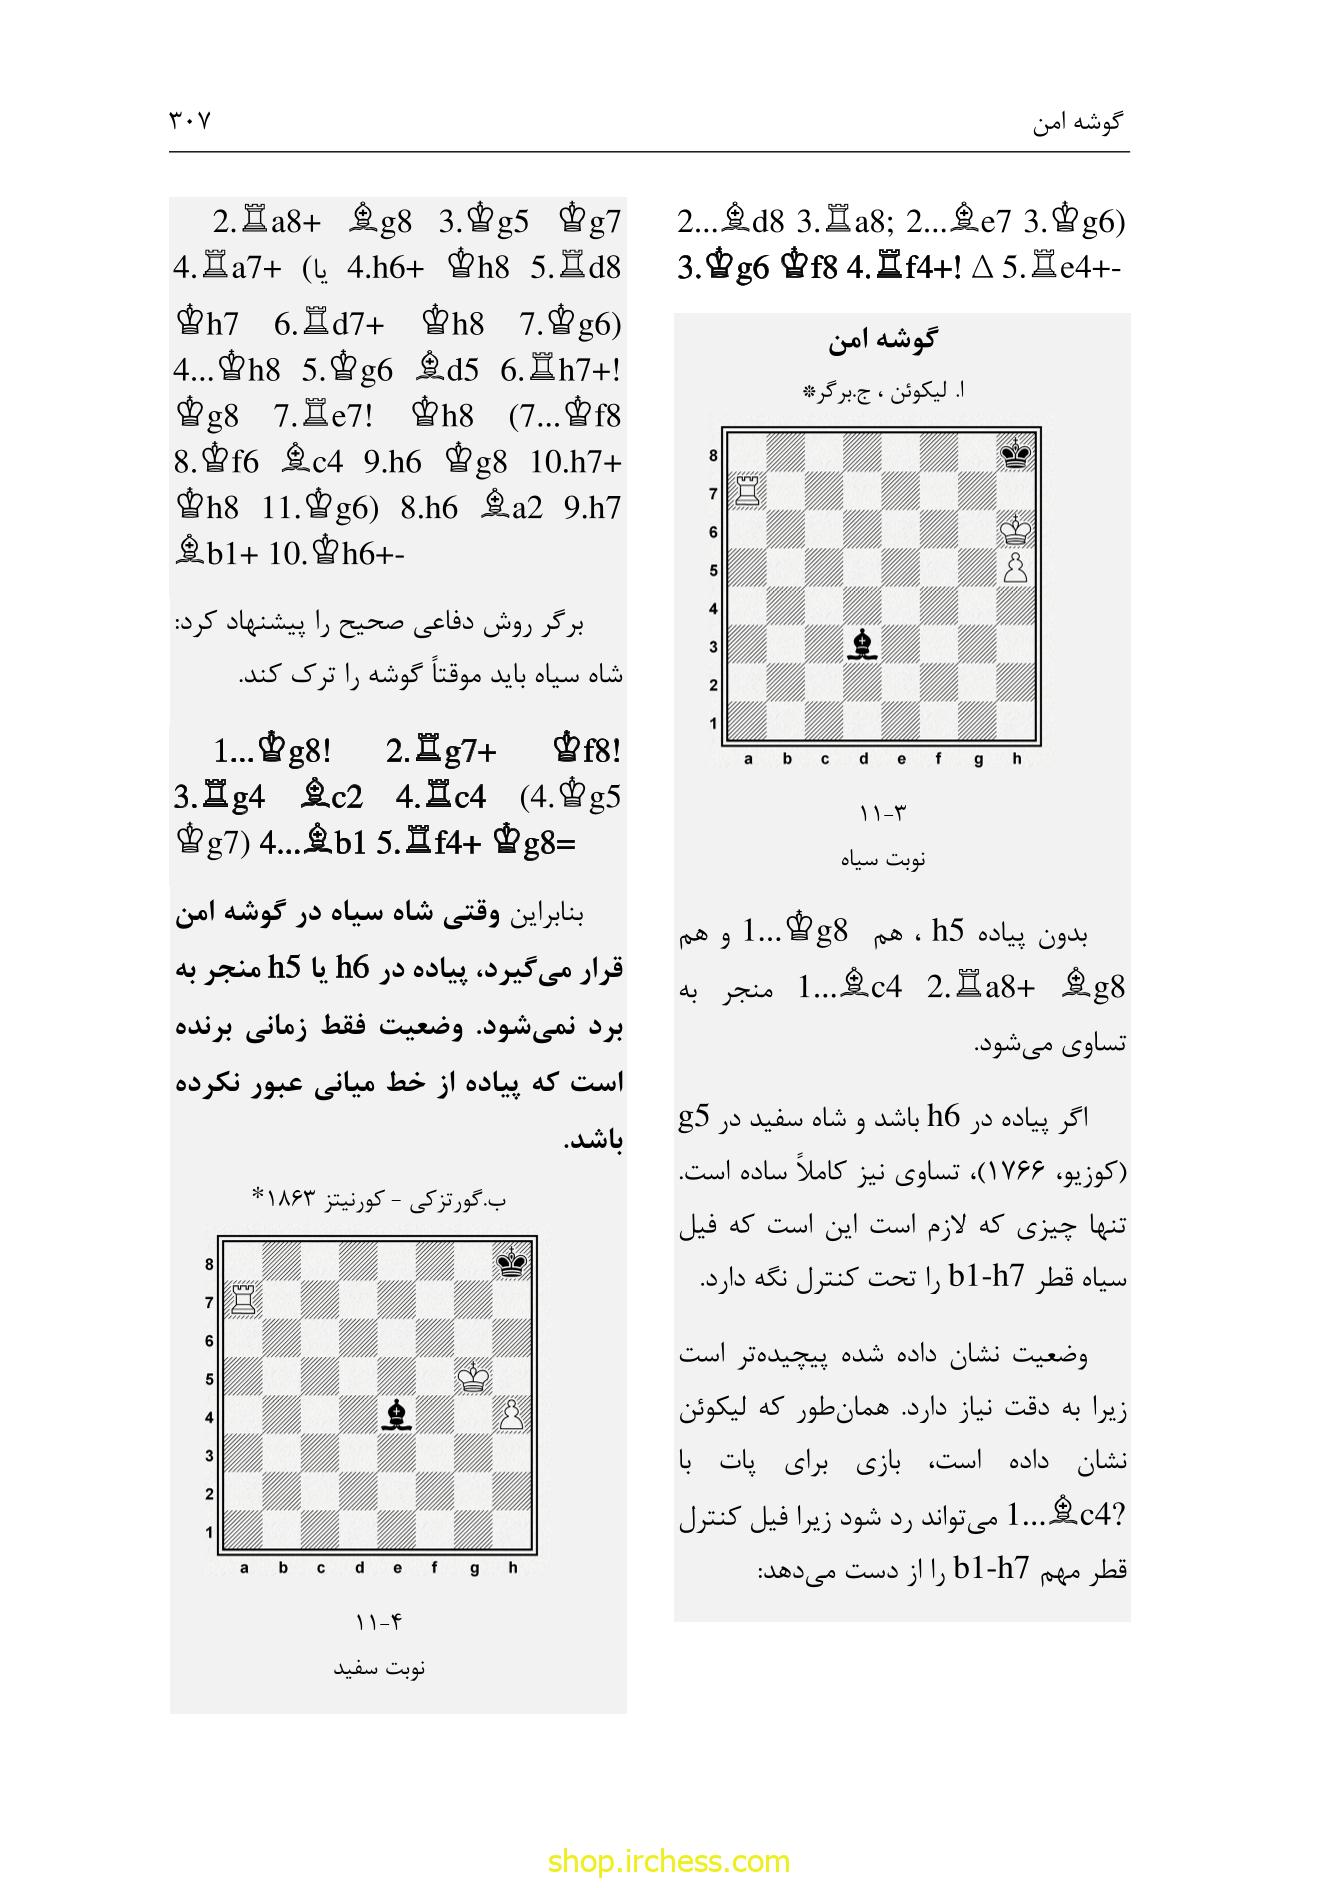 گوشه امن
۳۰۷
2...♗d8 3.♖a8; 2...♗e7 3.♔g6)
3.♔g6 ♔f8 4.♖f4+! Δ 5.♖e4+-
گوشه امن
ا. لیکوئن ، ج.برگر*
8
7
6
5
4
3
2
1
a b c d e f g h
۱۱-۳
نوبت سیاه
بدون پیاده h5 ، هم 1...♔g8 و هم
1...♗c4 2.♖a8+ ♗g8 منجر به
تساوی می‌شود.
اگر پیاده در h6 باشد و شاه سفید در g5
(کوزیو، ۱۷۶۶)، تساوی نیز کاملاً ساده است.
تنها چیزی که لازم است این است که فیل
سیاه قطر b1-h7 را تحت کنترل نگه دارد.
وضعیت نشان داده شده پیچیده‌تر است
زیرا به دقت نیاز دارد. همان‌طور که لیکوئن
نشان داده است، بازی برای پات با
1...♗c4? می‌تواند رد شود زیرا فیل کنترل
قطر مهم b1-h7 را از دست می‌دهد:
2.♖a8+ ♗g8 3.♔g5 ♔g7
4.♖a7+ (یا 4.h6+ ♔h8 5.♖d8
♔h7 6.♖d7+ ♔h8 7.♔g6)
4...♔h8 5.♔g6 ♗d5 6.♖h7+!
♔g8 7.♖e7! ♔h8 (7...♔f8
8.♔f6 ♗c4 9.h6 ♔g8 10.h7+
♔h8 11.♔g6) 8.h6 ♗a2 9.h7
♗b1+ 10.♔h6+-
برگر روش دفاعی صحیح را پیشنهاد کرد:
شاه سیاه باید موقتاً گوشه را ترک کند.
1...♔g8! 2.♖g7+ ♔f8!
3.♖g4 ♗c2 4.♖c4 (4.♔g5
♔g7) 4...♗b1 5.♖f4+ ♔g8=
بنابراین وقتی شاه سیاه در گوشه امن
قرار می‌گیرد، پیاده در h6 یا h5 منجر به
برد نمی‌شود. وضعیت فقط زمانی برنده
است که پیاده از خط میانی عبور نکرده
باشد.
ب.گورتزکی - کورنیتز ۱۸۶۳*
8
7
6
5
4
3
2
1
a b c d e f g h
۱۱-۴
نوبت سفید
shop.irchess.com